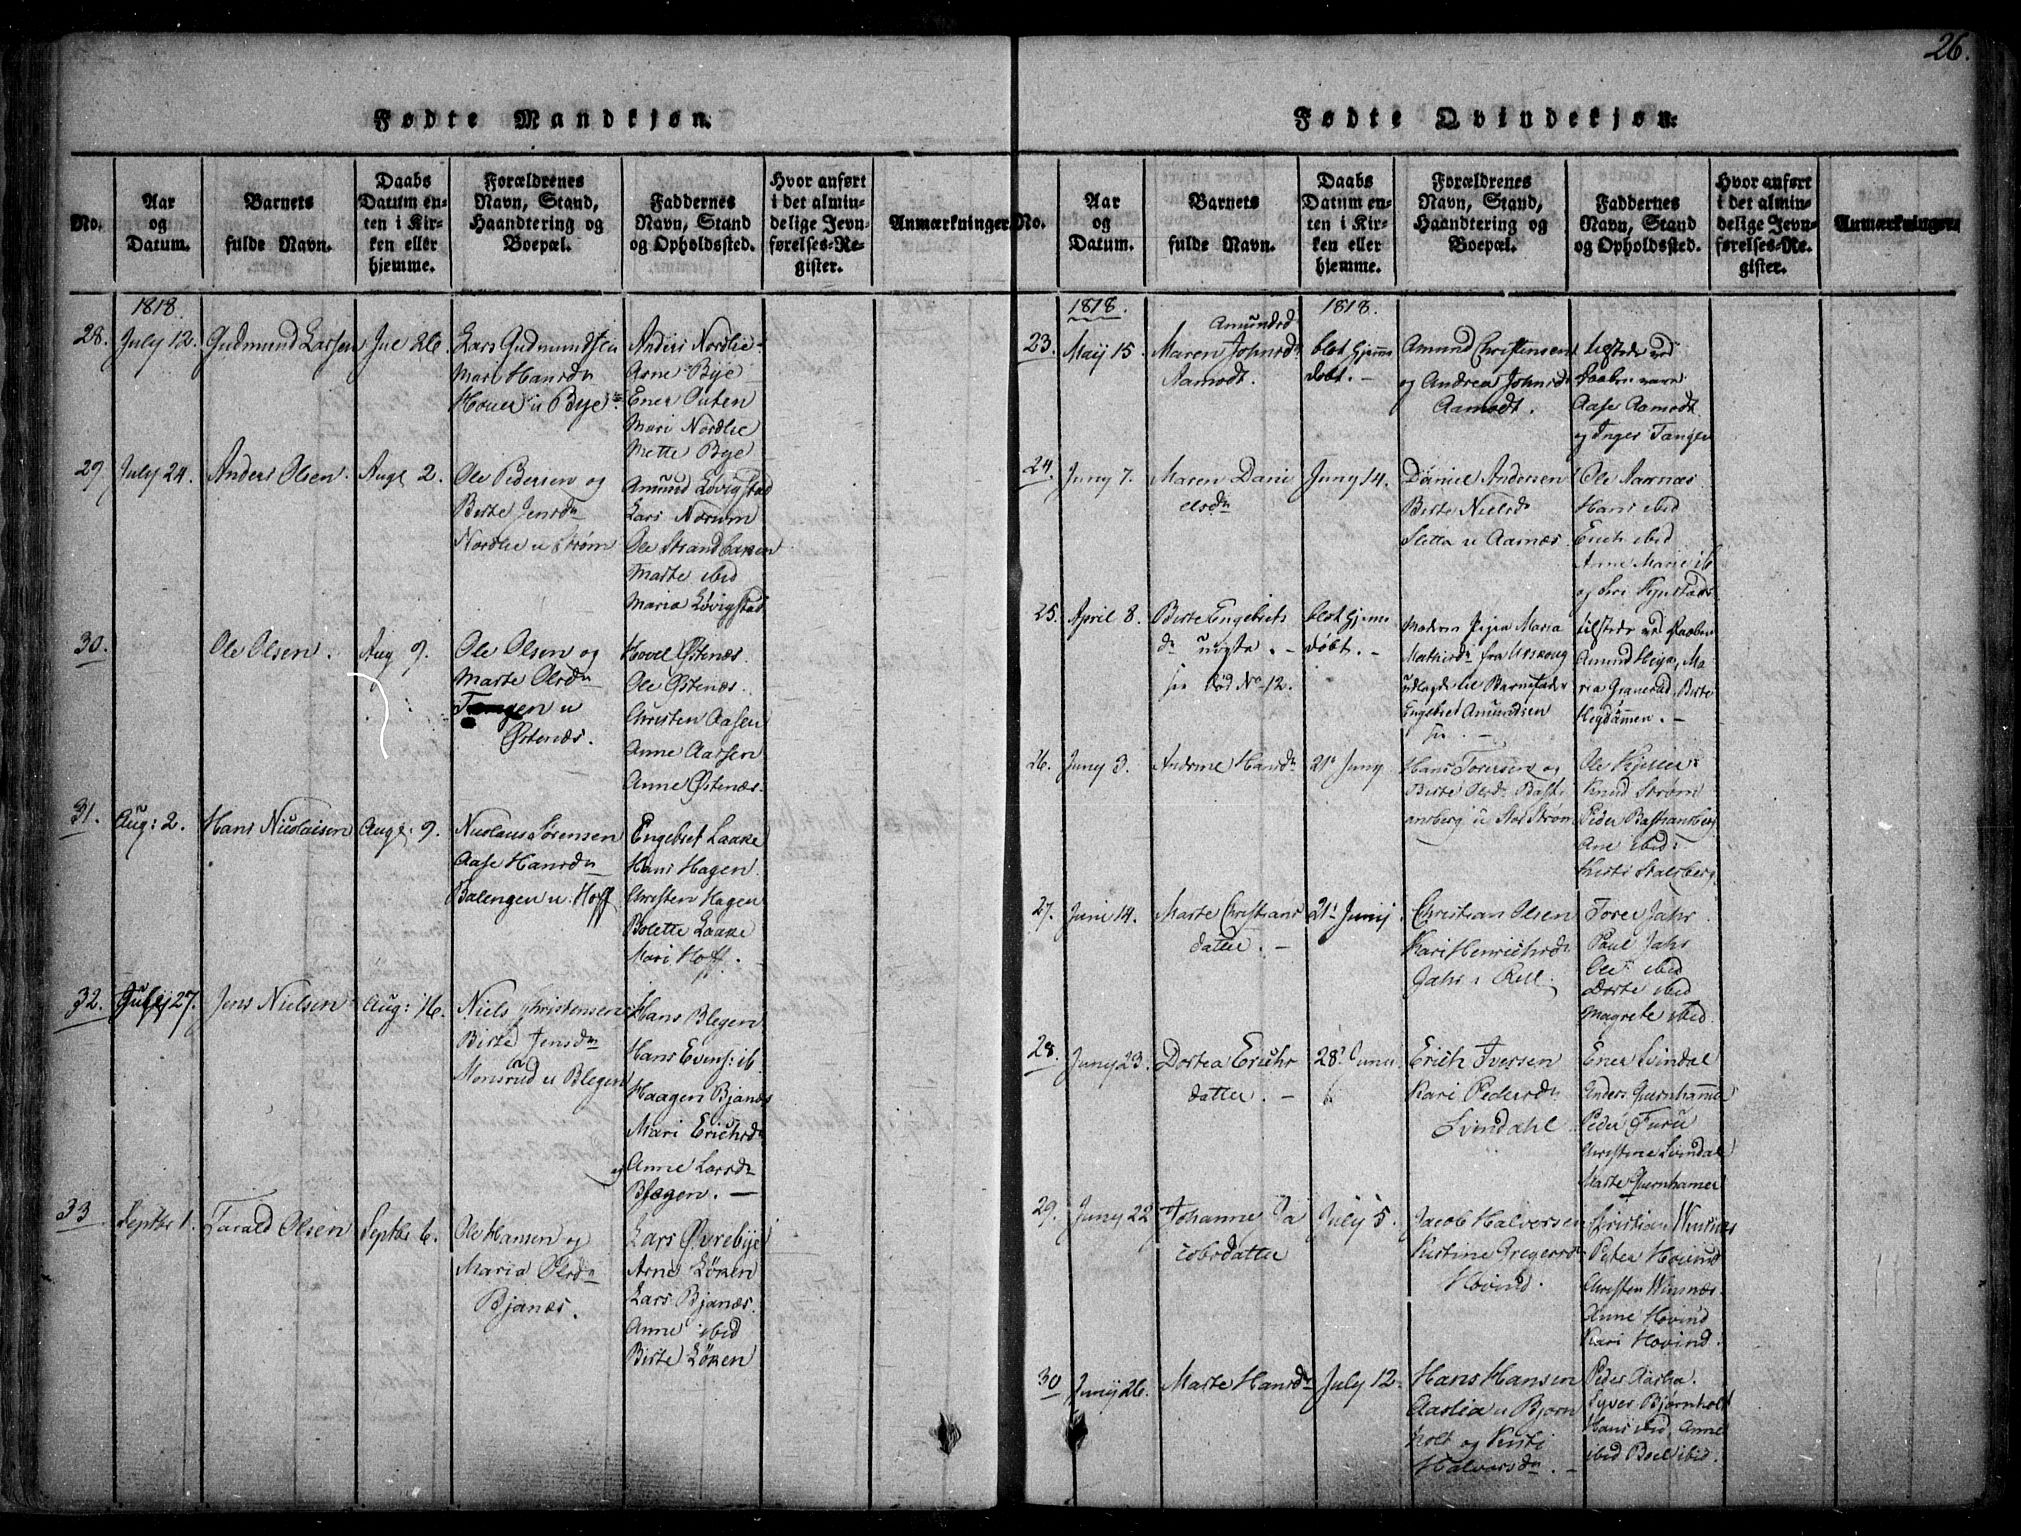 26.
Fødte Mandkjøn.
No.
Aar
og
Datum.
Barnets
fulde Navn.
Daabs
Datum en-
ten i Kir-
ken eller
hjemme.
Forældrenes
Navn, Stand,
Haandtering og
Boepæl.
Faddernes
Navn, Stand
og Opholdssted.
Hvor anført
i det almin-
delige Jevn-
førelses-Re-
gister.
Anmærkninger
1818.
28. July 12. Gudmund Larsen Jul 26.
Lars Gudmundsen
Mari Hansdn
Houer u Bye
Anders Nordlie
Arne Bye
Ener Outen
Mari Nordlie
Mette Bye
29. July 24. Anders Olsen. Augt 2.
Ole Pedersen og
Birte Jensdn
Nordlie u Strøm
Amund Løvigstad
Lars Norum
Ole Strandbaken
Marte ibid
Maria Løvigstad
30. Ole Olsen. Aug 9.
Ole Olsen og
Marte Olsdn
Tangen u
Østenæs.
Hovel Østenæs.
Ole Østenæs.
Christen Aasen
Anne Aarsen
Anne Østenæs.
31. Aug: 2. Hans Nicolaisen Augt: 9.
Nicolaus Sørensen
Aase Hansdn
Balengen u. Hoff
Engebret Laake
Hans Hagen
Christen Hagen
Bolette Laake
Mari Hoff.
32. July 27. Jens Nielsen Aug: 16.
Niels Christensen
Birte Jensdn
Monsrud u Blegen
Hans Blegen
Hans Evens: ib.
Haagen Bjanæs
Mari Erichsdn
og Anne Larsdn
Blegen. —
33. Septbr 1. Tarald Olsen Septbr 6.
Ole Hansen og
Maria Olsdn
Bjanæs.
Lars Øvrebye
Arne Løken
Lars Bjanæs.
Anne ibid
Birte Løken
Fødte Qvindekjøn.
No.
Aar
og
Datum.
Barnets
fulde Navn.
Daabs
Datum en-
ten i Kir-
ken eller
hjemme.
Forældrenes
Navn, Stand,
Haandtering og
Boepæl.
Faddernes
Navn, Stand
og Opholdssted.
Hvor anført
i det almin-
delige Jevn-
førelses-Re-
gister.
Anmærkninger
1818. 1818.
Amundsd
23. Maÿ 15. Maren Johnsdn
Aamodt.
blot hjemme
døbt. —
Amund Christensen
og Andrea Johnsd
Aamodt.
tilstede ved
Daaben vare
Aase Aamodt
og Inger Tangen
24. Juny 7. Maren Dani
elsdn
Juny 14.
Daniel Andersen
Birte Nielsd
Sletta u Aarnæs.
Ole Aarnæs
Hans ibid
Erich ibid
Anne Marie ib
og Siri
25. April 8. Birte Engebrets
dn uægte. —
blot hjemme
døbt. —
see Død No 12.
Moderen Pigen Maria
Mathisdn fra Urskoug
udlagde til Barnefader
Engebret Amundsen
tilstede ved Daaben
Amund Heja, Ma
ria Granerud, Birte
26. Juny 3. Andrine Hansdn 21d Juny
Hans Toresen og
Birte Olsdn Basti
ansberg u Stor Strøm
Ole
Knud Strøm
Peder Bastiansberg
Ane ibid:
Kirsti Stalsberg.
27. Juni 14. Marte Christians
datter. —
21d Junij
Christian Olsen
Kari Henrichsdn
Jahr i Eell.
Torer Jahr
Paul Jahr
Ole ibid
Dorte ibid
Magrete ibid
28. Juny 23. Dortea Erichs
datter. —
28d Juni
Erich Iversen
Kari Pedersdn
Svindahl
Ener Svindal
Anders Quernhammer
Peder Furu
Christine Svindal
Marte Quernhamer
29. Juny 22 Johanne Ja
cobsdatter
July 5.
Jacob Halversen
Kistine Gregersdn
Hovind.
Christian Winsnæs
Peter Hovind
Christen Winsnæs.
Anne Hovind
Kari Hovind.
30 Junij 26. Marte Hansdn July 12.
Hans Hansen
Aaslia u Bjørn
holt og Kirsti
Halvorsdn. —
Peder Aaslia.
Syver Bjørnholt
Hans ibid, Anne
ibid Boel ibid.